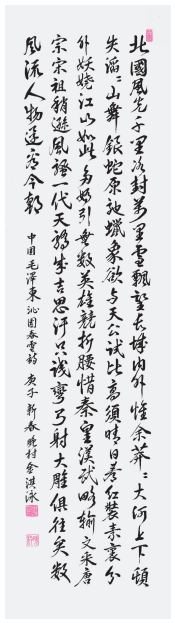 北國風光千里冰封萬里雪飄望長城內外惟余莽〻大河上下頓
失滔〻山舞銀蛇原馳蠟象欲与天公試比高須晴日看紅裝素裹分
外妖嬈江山如此多嬌引無數英雄競折腰惜秦皇漢武略輸文采唐
宗宋祖稍遜風騷一代天驕成吉思汗只識彎弓射大雕俱往矣數
風流人物還看今朝
中国毛澤東沁園春雪詩 庚子新春晩村金洪泳